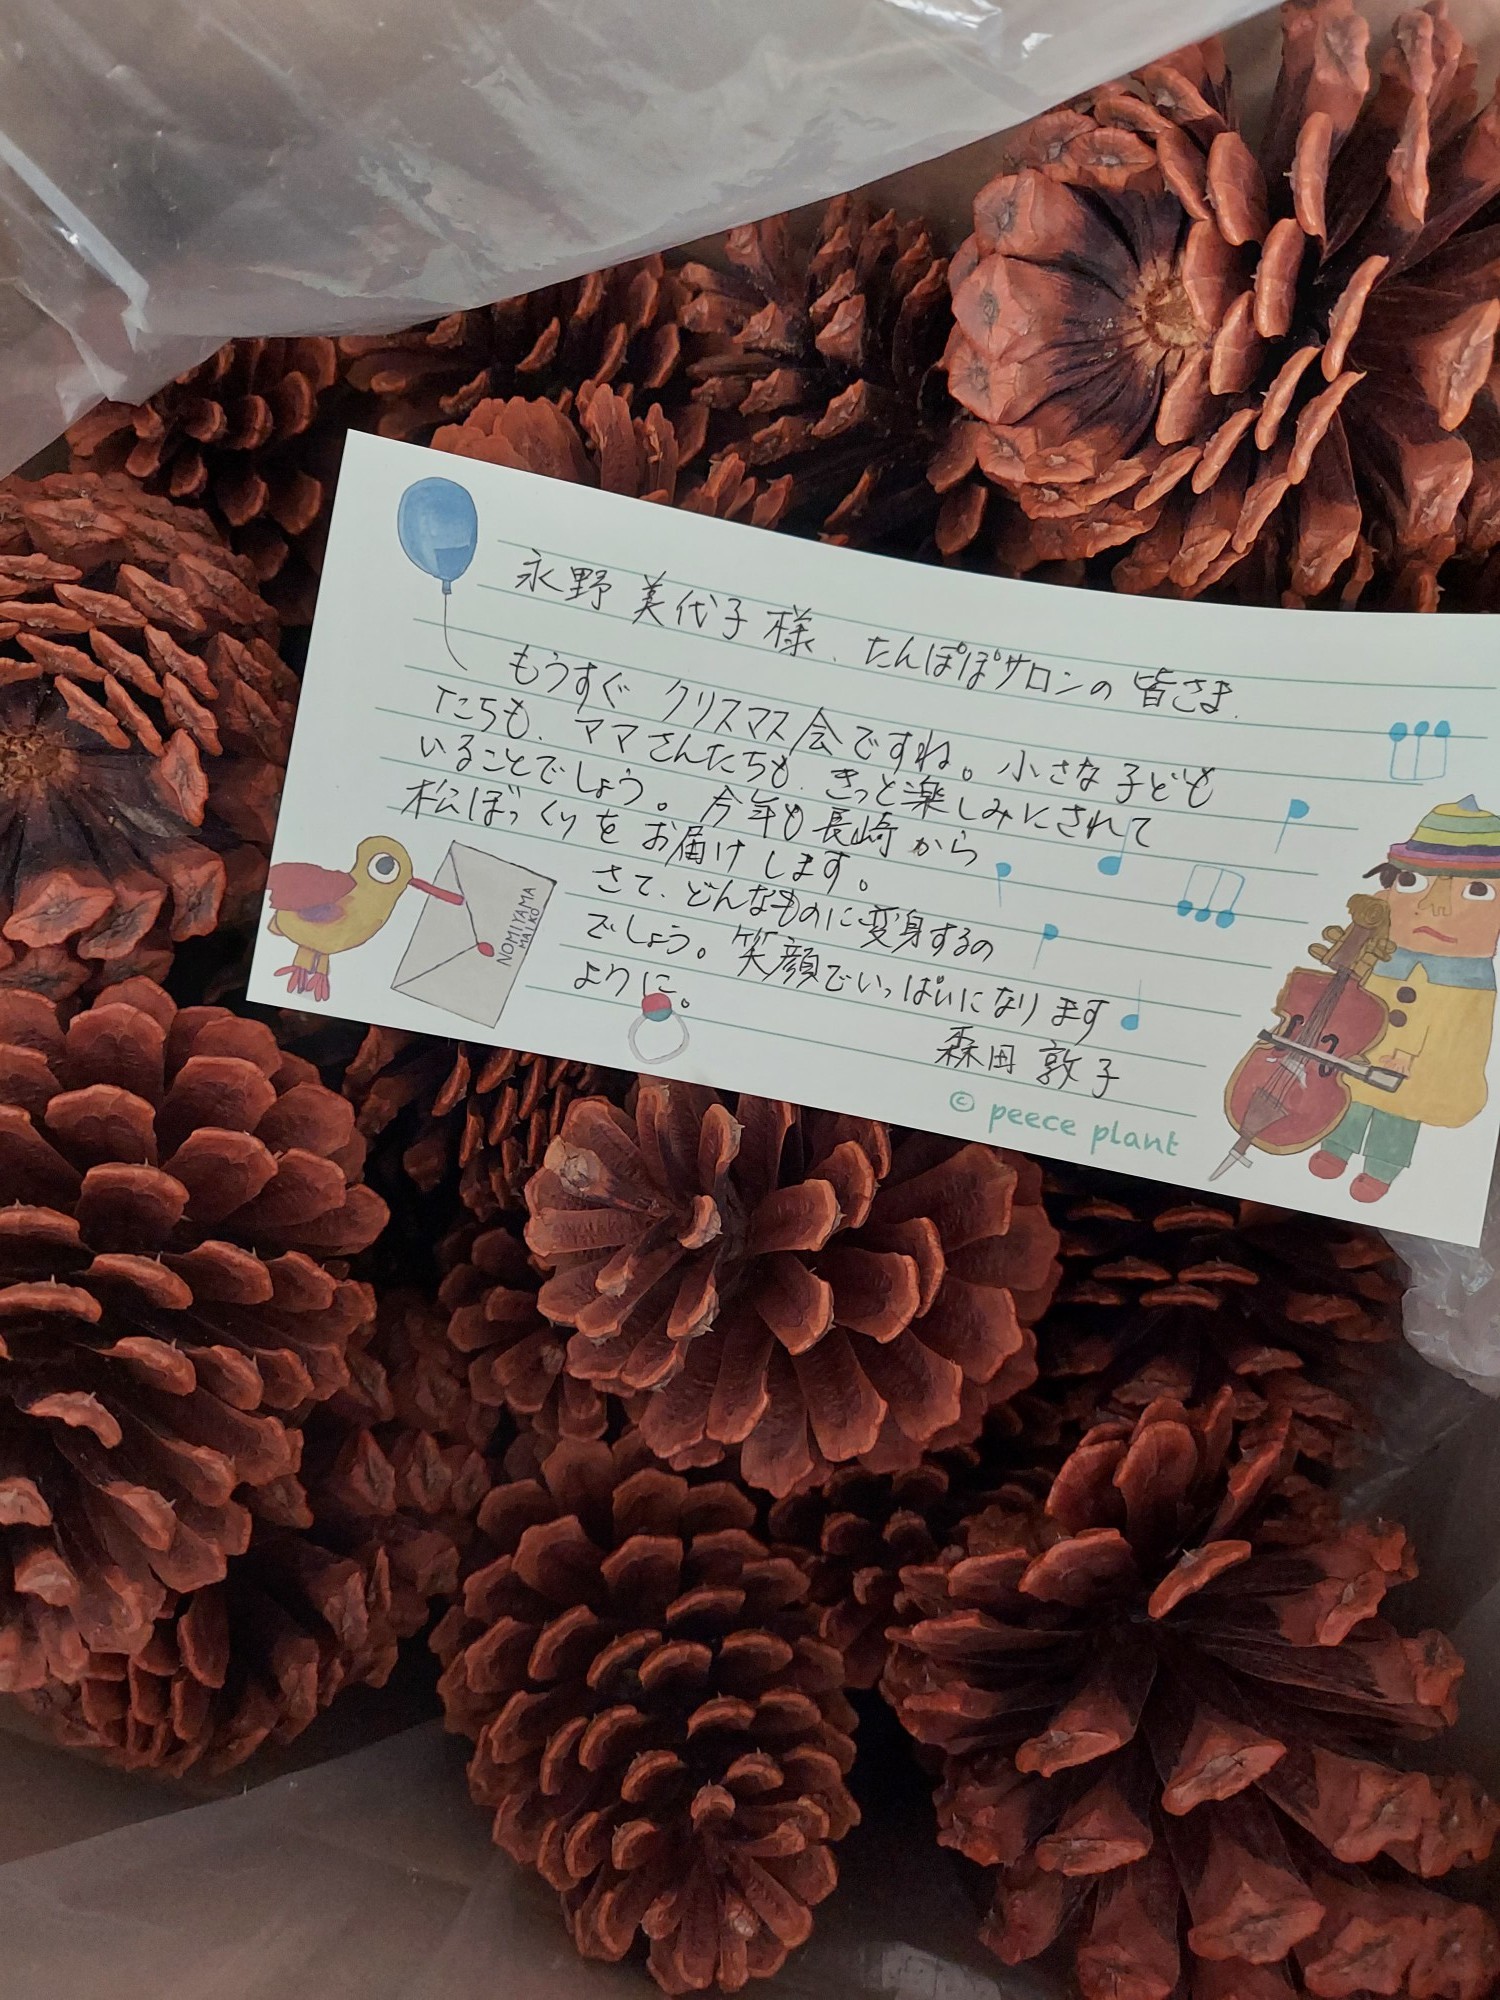 永野 美代子様、たんぽぽサロンの 皆さま
もうすぐ クリスマス会ですね。小さな子ども
たちも、ママさんたちも、きっと楽しみにされて
いることでしょう。今年も長崎から
松ぼっくりを お届けします。
さて、どんなものに変身するの
でしょう。笑顔でいっぱいになります
ように。
森田 敦子
NOMIYAMA
MAIKO
© peece plant